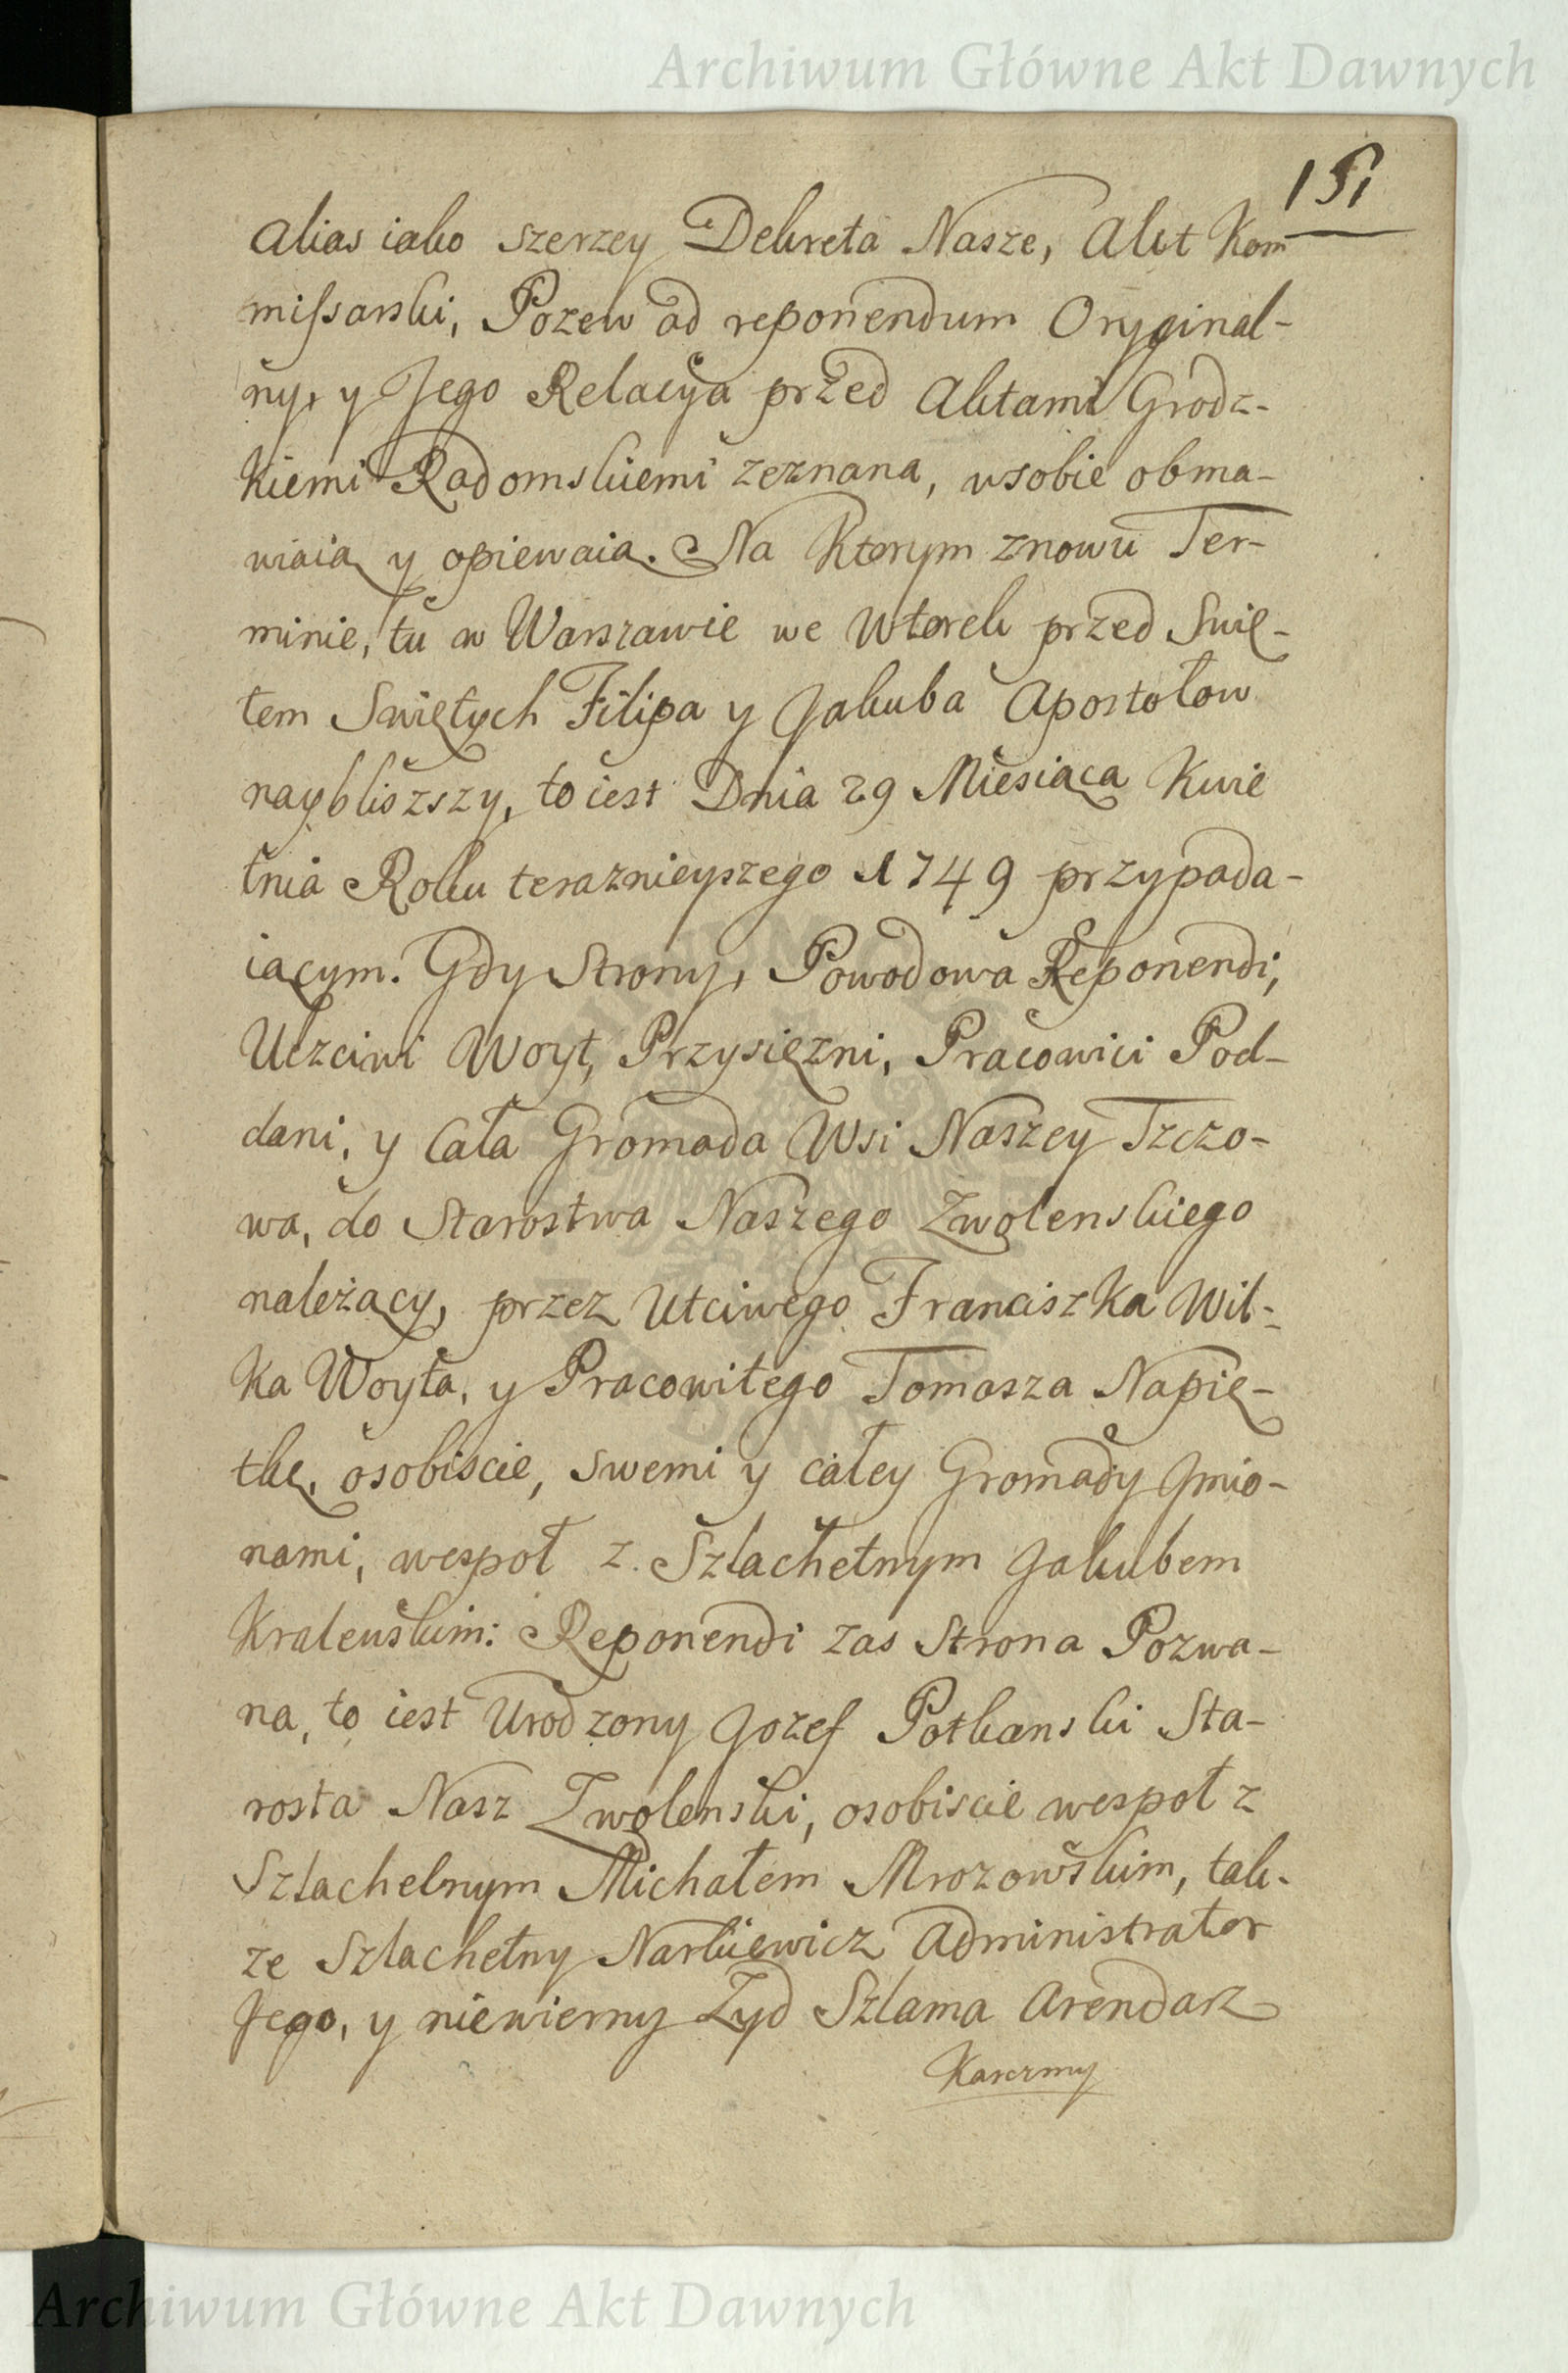 Archiwum Główne Akt Dawnych
151
alias iako szerzey Dekreta Nasze, Akt Kom
missarski, Pozew ad reponendum Oryginal-
ny, y Jego Relacya przed Aktami Grodz-
kiemi Radomskiemi zeznana, wsobie obma-
wiaią y opiewaią. Na Ktorym znowu Ter-
minie, tu w Warszawie we Wtorek przed Swię-
tem Swiętych Filipa y Jakuba Apostołow
naybliższy, to iest Dnia 29 Miesiąca Kwie
tnia Roku teraznieyszego 1749 przypada-
iącym. Gdy Strony, Powodowa Reponendi,
Uczciwi Woyt, Przysięzni, Pracowici Pod-
dani, y Cała Gromada Wsi Naszey Tzczo-
wa, do Starostwa Naszego Zwolenskiego
należący, przez Utciwego Franciszka Wil-
ka Woyta, y Pracowitego Tomasza Napię-
tkę, osobiscie, swemi y całey Gromady Jmio-
nami, wespoł z Szlachetnym Jakubem
Kralewskim: Reponendi zas Strona Pozwa-
na, to iest Urodzony Jozef Potkanski Sta-
rosta Nasz Zwolenski, osobiscie wespoł z
Szlachetnym Michałem Mrozowskim, tak-
ze Szlachetny Narkiewicz Administrator
Jego, y niewierny Zyd Szlama Arendarz
Karczmy
Archiwum Główne Akt Dawnych